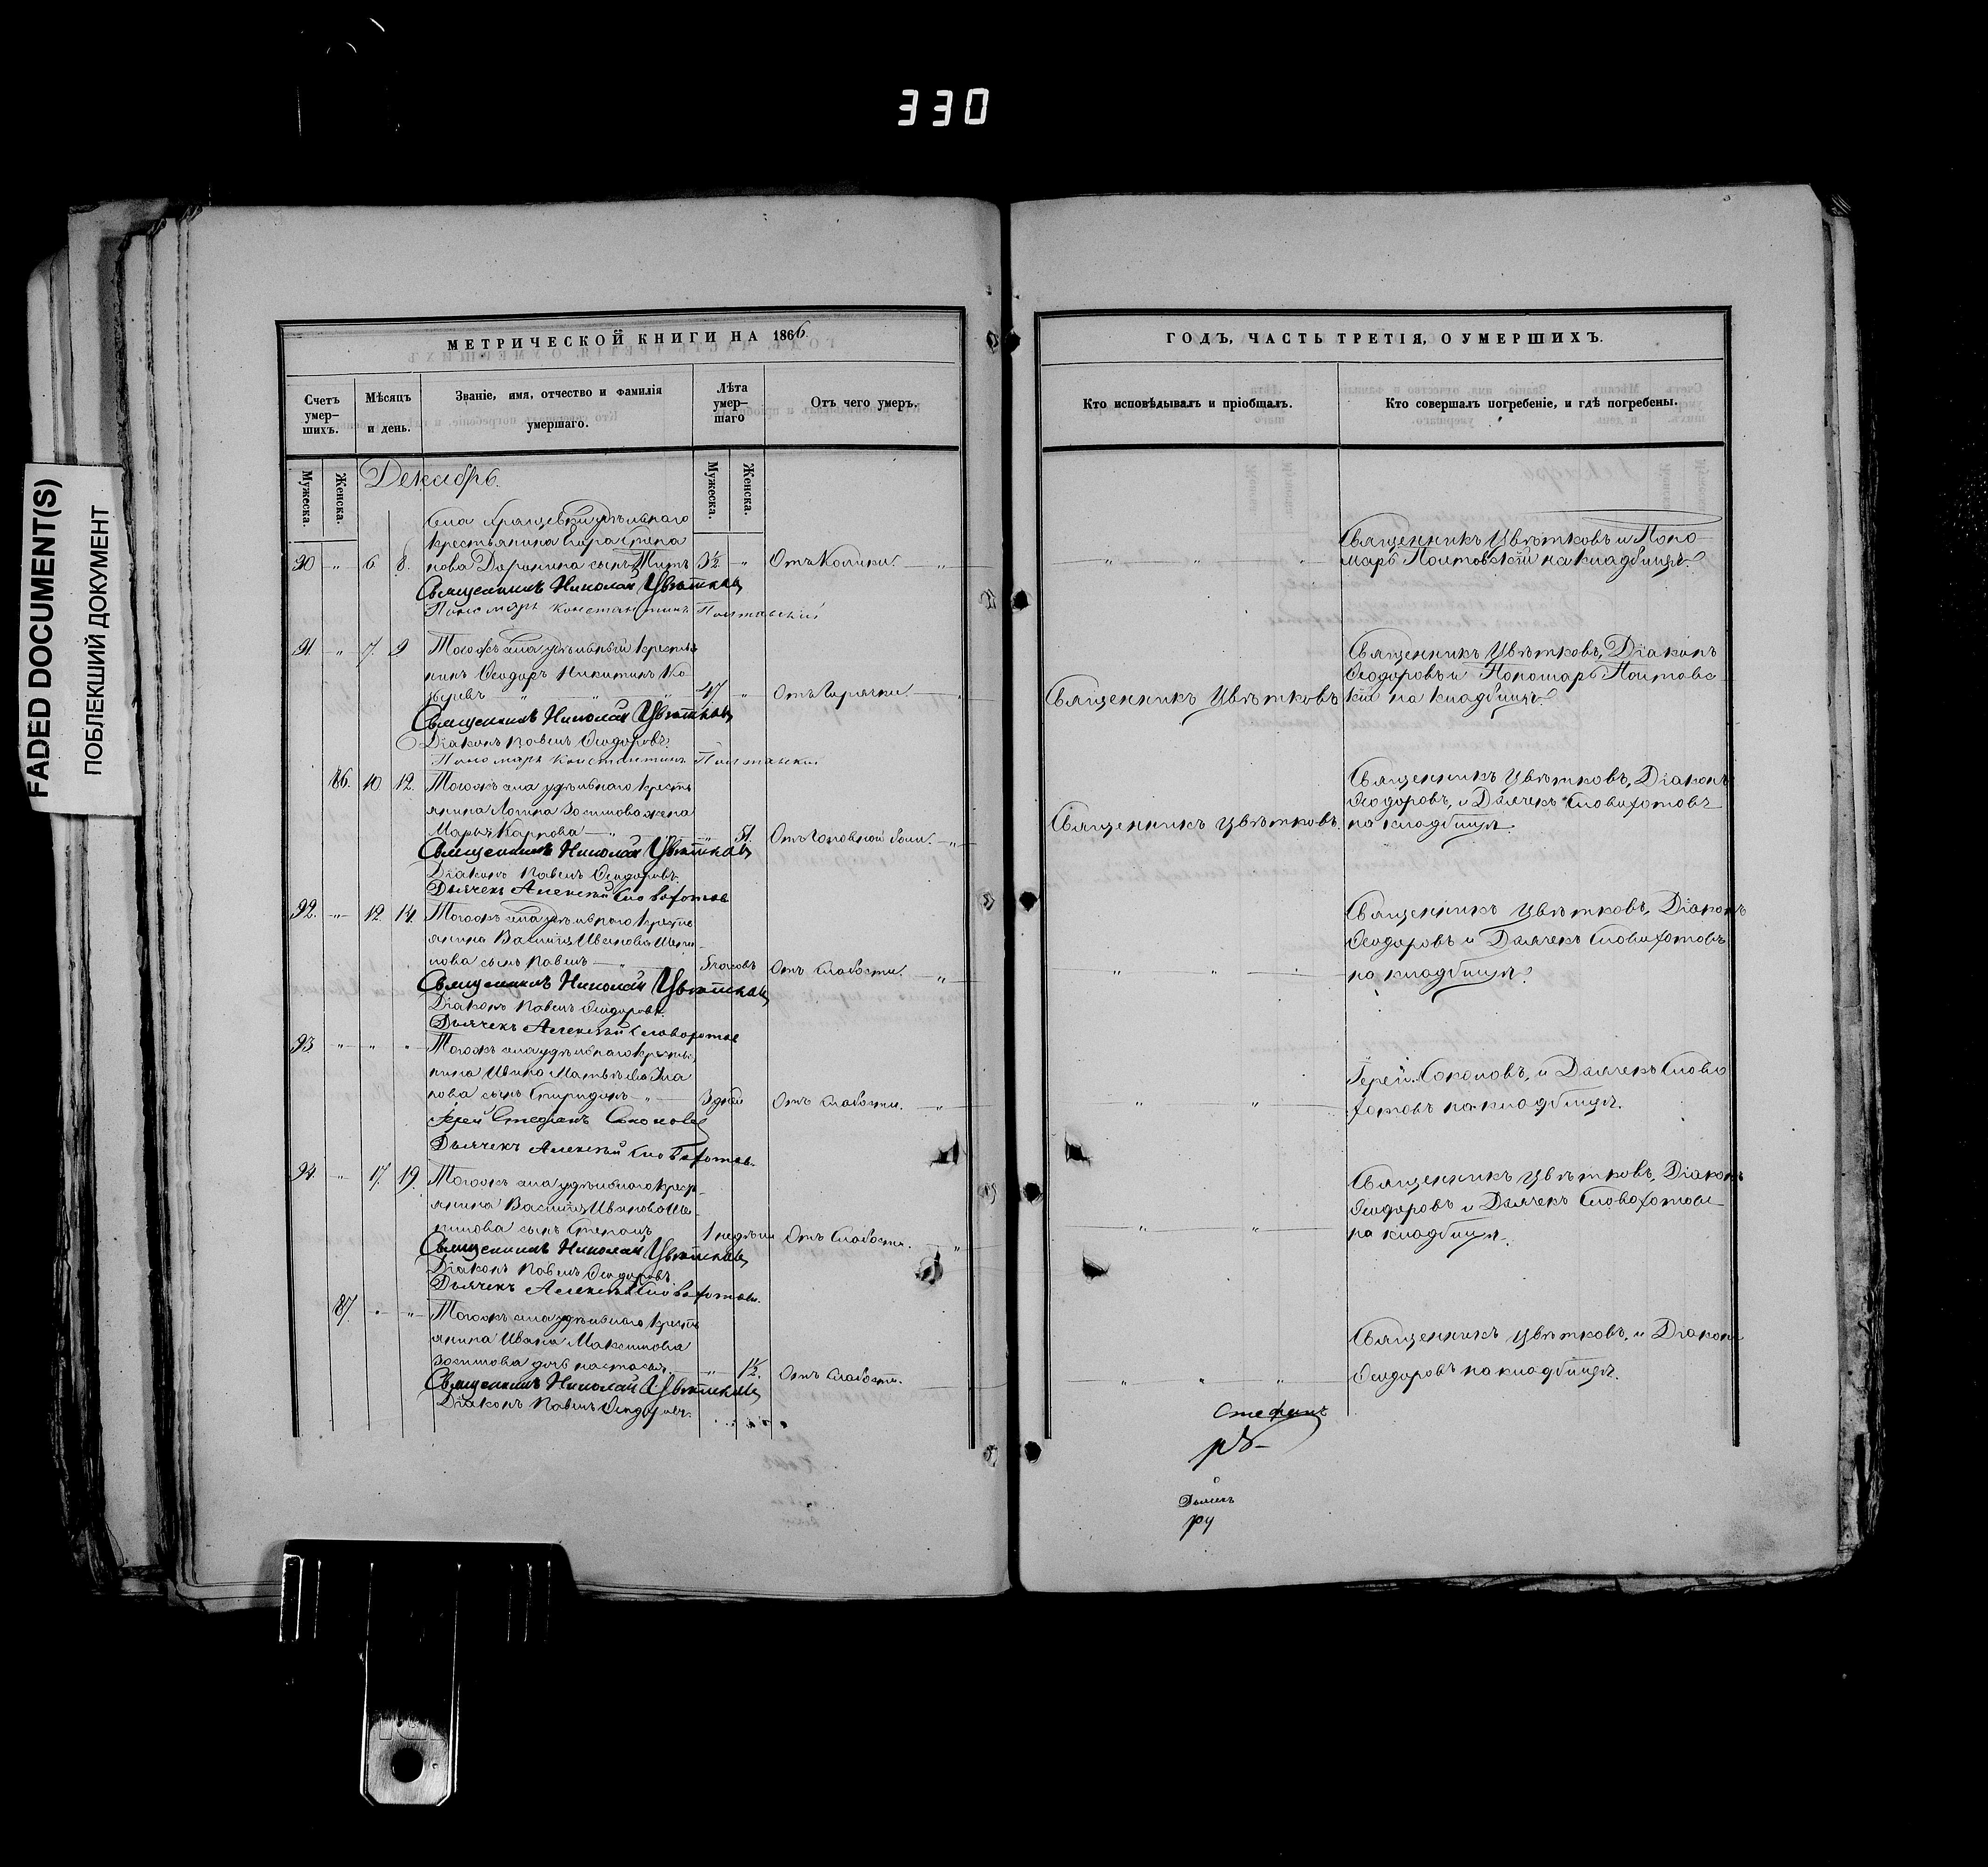 330
FADED DOCUMENT(S)
ПОБЛЕКШИЙ ДОКУМЕНТ
МЕТРИЧЕСКОЙ КНИГИ НА 1866.
Счетъ умер-
шихъ.
Мѣсяцъ
и день.
Званіе, имя, отчество и фамилія
умершаго.
Лѣта
умер-
шаго
Отъ чего умеръ.
Мужеска.
Женска.
Декабрь.
Мужеска.
Женска.
Села удѣльнаго
крестьянина
90 " 6 8. нова сынъ Титъ 3½ " Отъ Колики. "
Священникъ Николай Цвѣтковъ
Пономарь Константинъ Полтавскій
91. " 7. 9 Тогожъ села удѣльный крестья
нинъ Ѳеодоръ Никитинъ Ко
зыревъ " " " 47 " Отъ Горячки. "
Священникъ Николай Цвѣтковъ
Діаконъ Павелъ Ѳеодоровъ.
Пономарь Константинъ Полтавскій
86. 10 12. Тогожъ села удѣльнаго кресть
янина Зосимова жена
Марья Карпова " " 51. Отъ Головной боли. "
Священникъ Николай Цвѣтковъ
Діаконъ Павелъ Ѳеодоровъ.
Дьячекъ Алексѣй Словохотовъ
92. " 12 14. Тогожъ села удѣльнаго кресть
янина Василія Иванова Шепи-
лова сынъ Павелъ " часовъ Отъ слабости. "
Священникъ Николай Цвѣтковъ
Діаконъ Павелъ Ѳеодоровъ.
Дьячекъ Алексѣй Словохотовъ
93 " " " Тогожъ села удѣльнаго кресть-
нина Ивана Матвѣева
нова сынъ Спиридонъ " 3 дней Отъ слабости. "
Іерей Стефанъ Соколовъ
Дьячекъ Алексѣй Словохотовъ.
94. " 17. 19. Тогожъ села удѣльнаго крест-
янина Василія Иванова Ше-
пилова сынъ Степанъ 1 недѣли Отъ Слабости. "
Священникъ Николай Цвѣтковъ
Діаконъ Павелъ Ѳеодоровъ.
Дьячекъ Алексѣй Словохотовъ.
87. " " Тогожъ села удѣльнаго кресть
янина Ивана Максимова
Зосимова дочь Настасья. " 1½. Отъ Слабости.
Священникъ Николай Цвѣтковъ
Діаконъ Павелъ Ѳеодоровъ.
ГОДЪ, ЧАСТЬ ТРЕТІЯ, О УМЕРШИХЪ.
Кто исповѣдывалъ и пріобщалъ.
Кто совершалъ погребеніе, и гдѣ погребены.
Священникъ Цвѣтковъ и Поно
" " " марь Полтавскій на кладбищѣ.
Священникъ Цвѣтковъ, Діаконъ
Ѳеодоровъ и Пономарь Полтавс
Священникъ Цвѣтковъ кій на кладбищѣ.
Священникъ Цвѣтковъ, Діаконъ
Ѳеодоровъ, и Дьячекъ Словохотовъ
Священникъ Цвѣтковъ. на кладбищѣ.
Священникъ Цвѣтковъ, Діаконъ
Ѳеодоровъ и Дьячекъ Словохотовъ
" " " на кладбищѣ.
Іерей Соколовъ, и Дьячекъ Слово
" " хотовъ на кладбищѣ.
Священникъ Цвѣтковъ, Діаконъ
Ѳеодоровъ и Дьячекъ Словохотовъ
" " на кладбищѣ.
Священникъ Цвѣтковъ, и Діаконъ
" " " Ѳеодоровъ на кладбищѣ.
Стефанъ